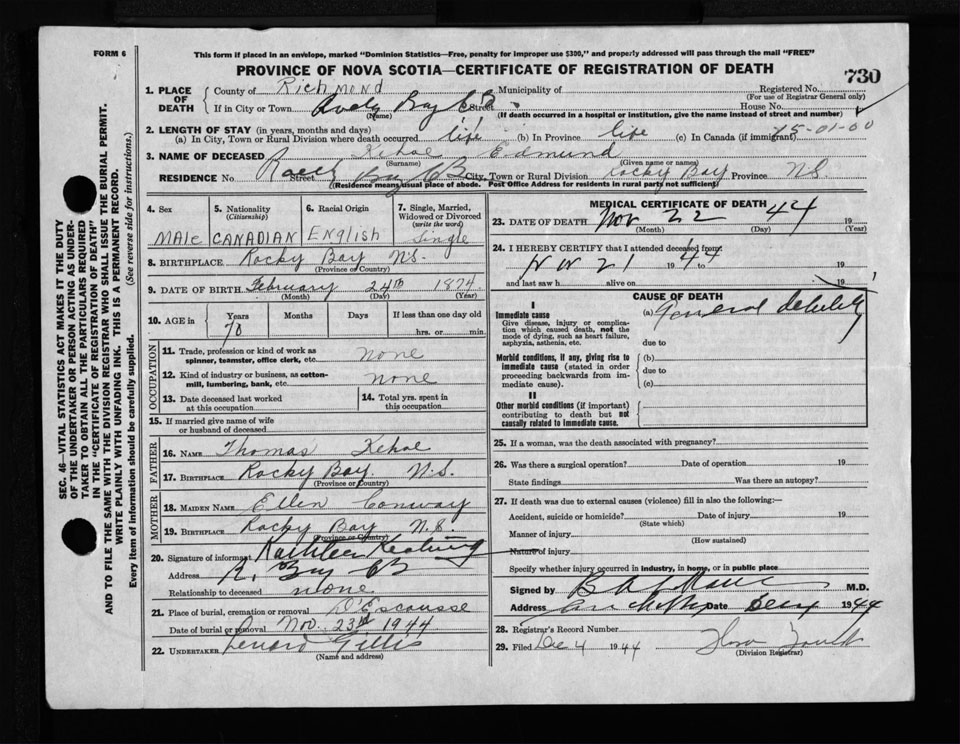 FORM 6
This form if placed in an envelope, marked "Dominion Statistics—Free, penalty for improper use $300," and properly addressed will pass through the mail "FREE"
PROVINCE OF NOVA SCOTIA—CERTIFICATE OF REGISTRATION OF DEATH
730
1. PLACE OF DEATH
County of Richmond Municipality of Registered No.
(For use of Registrar General only)
If in City or Town Rocky Bay C B Street House No.
(Name) (If death occurred in a hospital or institution, give the name instead of street and number)
2. LENGTH OF STAY (in years, months and days)
(a) In City, Town or Rural Division where death occurred life (b) In Province life (c) In Canada (if immigrant) 75-01-00
3. NAME OF DECEASED Kehoe Edmund
(Surname) (Given name or names)
RESIDENCE No. Street Rocky Bay CB City, Town or Rural Division Rocky Bay Province N.S.
(Residence means usual place of abode. Post Office Address for residents in rural parts not sufficient)
4. Sex
5. Nationality (Citizenship)
6. Racial Origin
7. Single, Married, Widowed or Divorced (write the word)
MALE CANADIAN English Single
8. BIRTHPLACE Rocky Bay N.S.
(Province or Country)
9. DATE OF BIRTH February 24th 1874
(Month) (Day) (Year)
10. AGE in Years Months Days If less than one day old
70 hrs. or min.
OCCUPATION
11. Trade, profession or kind of work as spinner, teamster, office clerk, etc. none
12. Kind of industry or business, as cotton-mill, lumbering, bank, etc. none
13. Date deceased last worked at this occupation
14. Total yrs. spent in this occupation
15. If married give name of wife or husband of deceased
FATHER
16. NAME Thomas Kehoe
17. BIRTHPLACE Rocky Bay N.S.
(Province or Country)
MOTHER
18. MAIDEN NAME Ellen Conway
19. BIRTHPLACE Rocky Bay N.S.
(Province or Country)
20. Signature of informant Kathleen Keating
Address R. Bay CB
Relationship to deceased none
21. Place of burial, cremation or removal D'Escousse
Date of burial or removal Nov. 23rd 1944
22. UNDERTAKER Lenard Gillis
(Name and address)
MEDICAL CERTIFICATE OF DEATH
23. DATE OF DEATH Nov 22 44 19
(Month) (Day) (Year)
24. I HEREBY CERTIFY that I attended deceased from:
Nov 21 1944 to 19
and last saw h alive on 19
CAUSE OF DEATH
I
Immediate cause
Give disease, injury or complication which caused death, not the mode of dying, such as heart failure, asphyxia, asthenia, etc.
(a) General debility
due to
Morbid conditions, if any, giving rise to immediate cause (stated in order proceeding backwards from immediate cause).
(b)
due to
(c)
II
Other morbid conditions (if important) contributing to death but not causally related to immediate cause.
25. If a woman, was the death associated with pregnancy?
26. Was there a surgical operation? Date of operation 19
State findings Was there an autopsy?
27. If death was due to external causes (violence) fill in also the following:—
Accident, suicide or homicide? Date of injury 19
(State which)
Manner of injury
(How sustained)
Nature of injury
Specify whether injury occurred in industry, in home, or in public place
Signed by M.D.
Address Date 1944
28. Registrar's Record Number
29. Filed Dec 4 1944
(Division Registrar)
SEC. 46—VITAL STATISTICS ACT MAKES IT THE DUTY
OF THE UNDERTAKER OR PERSON ACTING AS UNDER-
TAKER TO OBTAIN ALL THE PARTICULARS REQUIRED
IN THE "CERTIFICATE OF REGISTRATION OF DEATH"
AND TO FILE THE SAME WITH THE DIVISION REGISTRAR WHO SHALL ISSUE THE BURIAL PERMIT.
WRITE PLAINLY WITH UNFADING INK. THIS IS A PERMANENT RECORD.
Every item of information should be carefully supplied. (See reverse side for instructions.)